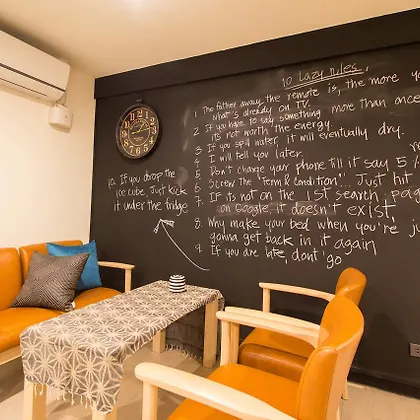 10 Lazy rules.
1. The father away the remote is, the more yo
what's already on TV.
2. If you have to say something more than once
its not worth the energy.
3. If you spil water, it will eventually dry.
4. I will tell you later.
5. Don't charge your phone till it say 5%
6. Screw the "Term & Condition"... Just hit
7. If its not on the 1st search pag
on Google, it doesn't exist
8. Why make your bed when you're ju
gonna get back in it again
9. If you are late, don't go
10. If you drop the
ice cube, Just kick
it under the fridge